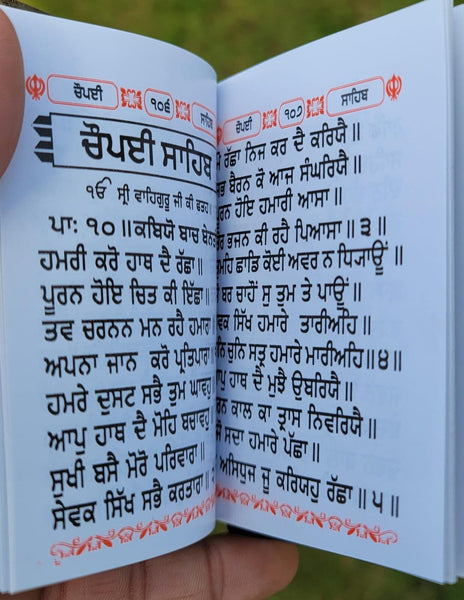 ਚੌਪਈ
੧੦੬
ਸਾਹਿਬ
ਚੌਪਈ ਸਾਹਿਬ
ੴ ਸ੍ਰੀ ਵਾਹਿਗੁਰੂ ਜੀ ਕੀ ਫਤਹ॥
ਪਾ: ੧੦ ॥ ਕਬਿਯੋ ਬਾਚ
ਹਮਰੀ ਕਰੋ ਹਾਥ ਦੈ ਰੱਛਾ॥
ਪੂਰਨ ਹੋਇ ਚਿਤ ਕੀ ਇੱਛਾ॥
ਤਵ ਚਰਨਨ ਮਨ ਰਹੈ ਹਮਾਰਾ॥
ਅਪਨਾ ਜਾਨ ਕਰੋ ਪ੍ਰਤਿਪਾਰਾ॥
ਹਮਰੇ ਦੁਸਟ ਸਭੈ ਤੁਮ ਘਾਵਹੁ॥
ਆਪੁ ਹਾਥ ਦੈ ਮੋਹਿ ਬਚਾਵਹੁ॥
ਸੁਖੀ ਬਸੈ ਮੋਰੋ ਪਰਿਵਾਰਾ॥
ਸੇਵਕ ਸਿੱਖ ਸਭੈ ਕਰਤਾਰਾ॥
ਚੌਪਈ
੧੦੭
ਸਾਹਿਬ
ਰੱਛਾ ਨਿਜ ਕਰ ਦੈ ਕਰਿਯੈ॥
ਬੈਰਨ ਕੋ ਆਜ ਸੰਘਰਿਯੈ॥
ਹੋਇ ਹਮਾਰੀ ਆਸਾ॥
ਭਜਨ ਕੀ ਰਹੈ ਪਿਆਸਾ॥੩॥
ਛਾਡਿ ਕੋਈ ਅਵਰ ਨ ਧਿਯਾਊਂ॥
ਬਰ ਚਾਹੋਂ ਸੁ ਤੁਮ ਤੇ ਪਾਊਂ॥
ਸਿੱਖ ਹਮਾਰੇ ਤਾਰੀਅਹਿ॥
ਚੁਨਿ ਸਤ੍ਰ ਹਮਾਰੇ ਮਾਰੀਅਹਿ॥੪॥
ਹਾਥ ਦੈ ਮੁਝੈ ਉਬਰਿਯੈ॥
ਕਾਲ ਕਾ ਤ੍ਰਾਸ ਨਿਵਰਿਯੈ॥
ਸਦਾ ਹਮਾਰੇ ਪੱਛਾ॥
ਅਸਿਧੁਜ ਜੂ ਕਰਿਯਹੁ ਰੱਛਾ॥੫॥